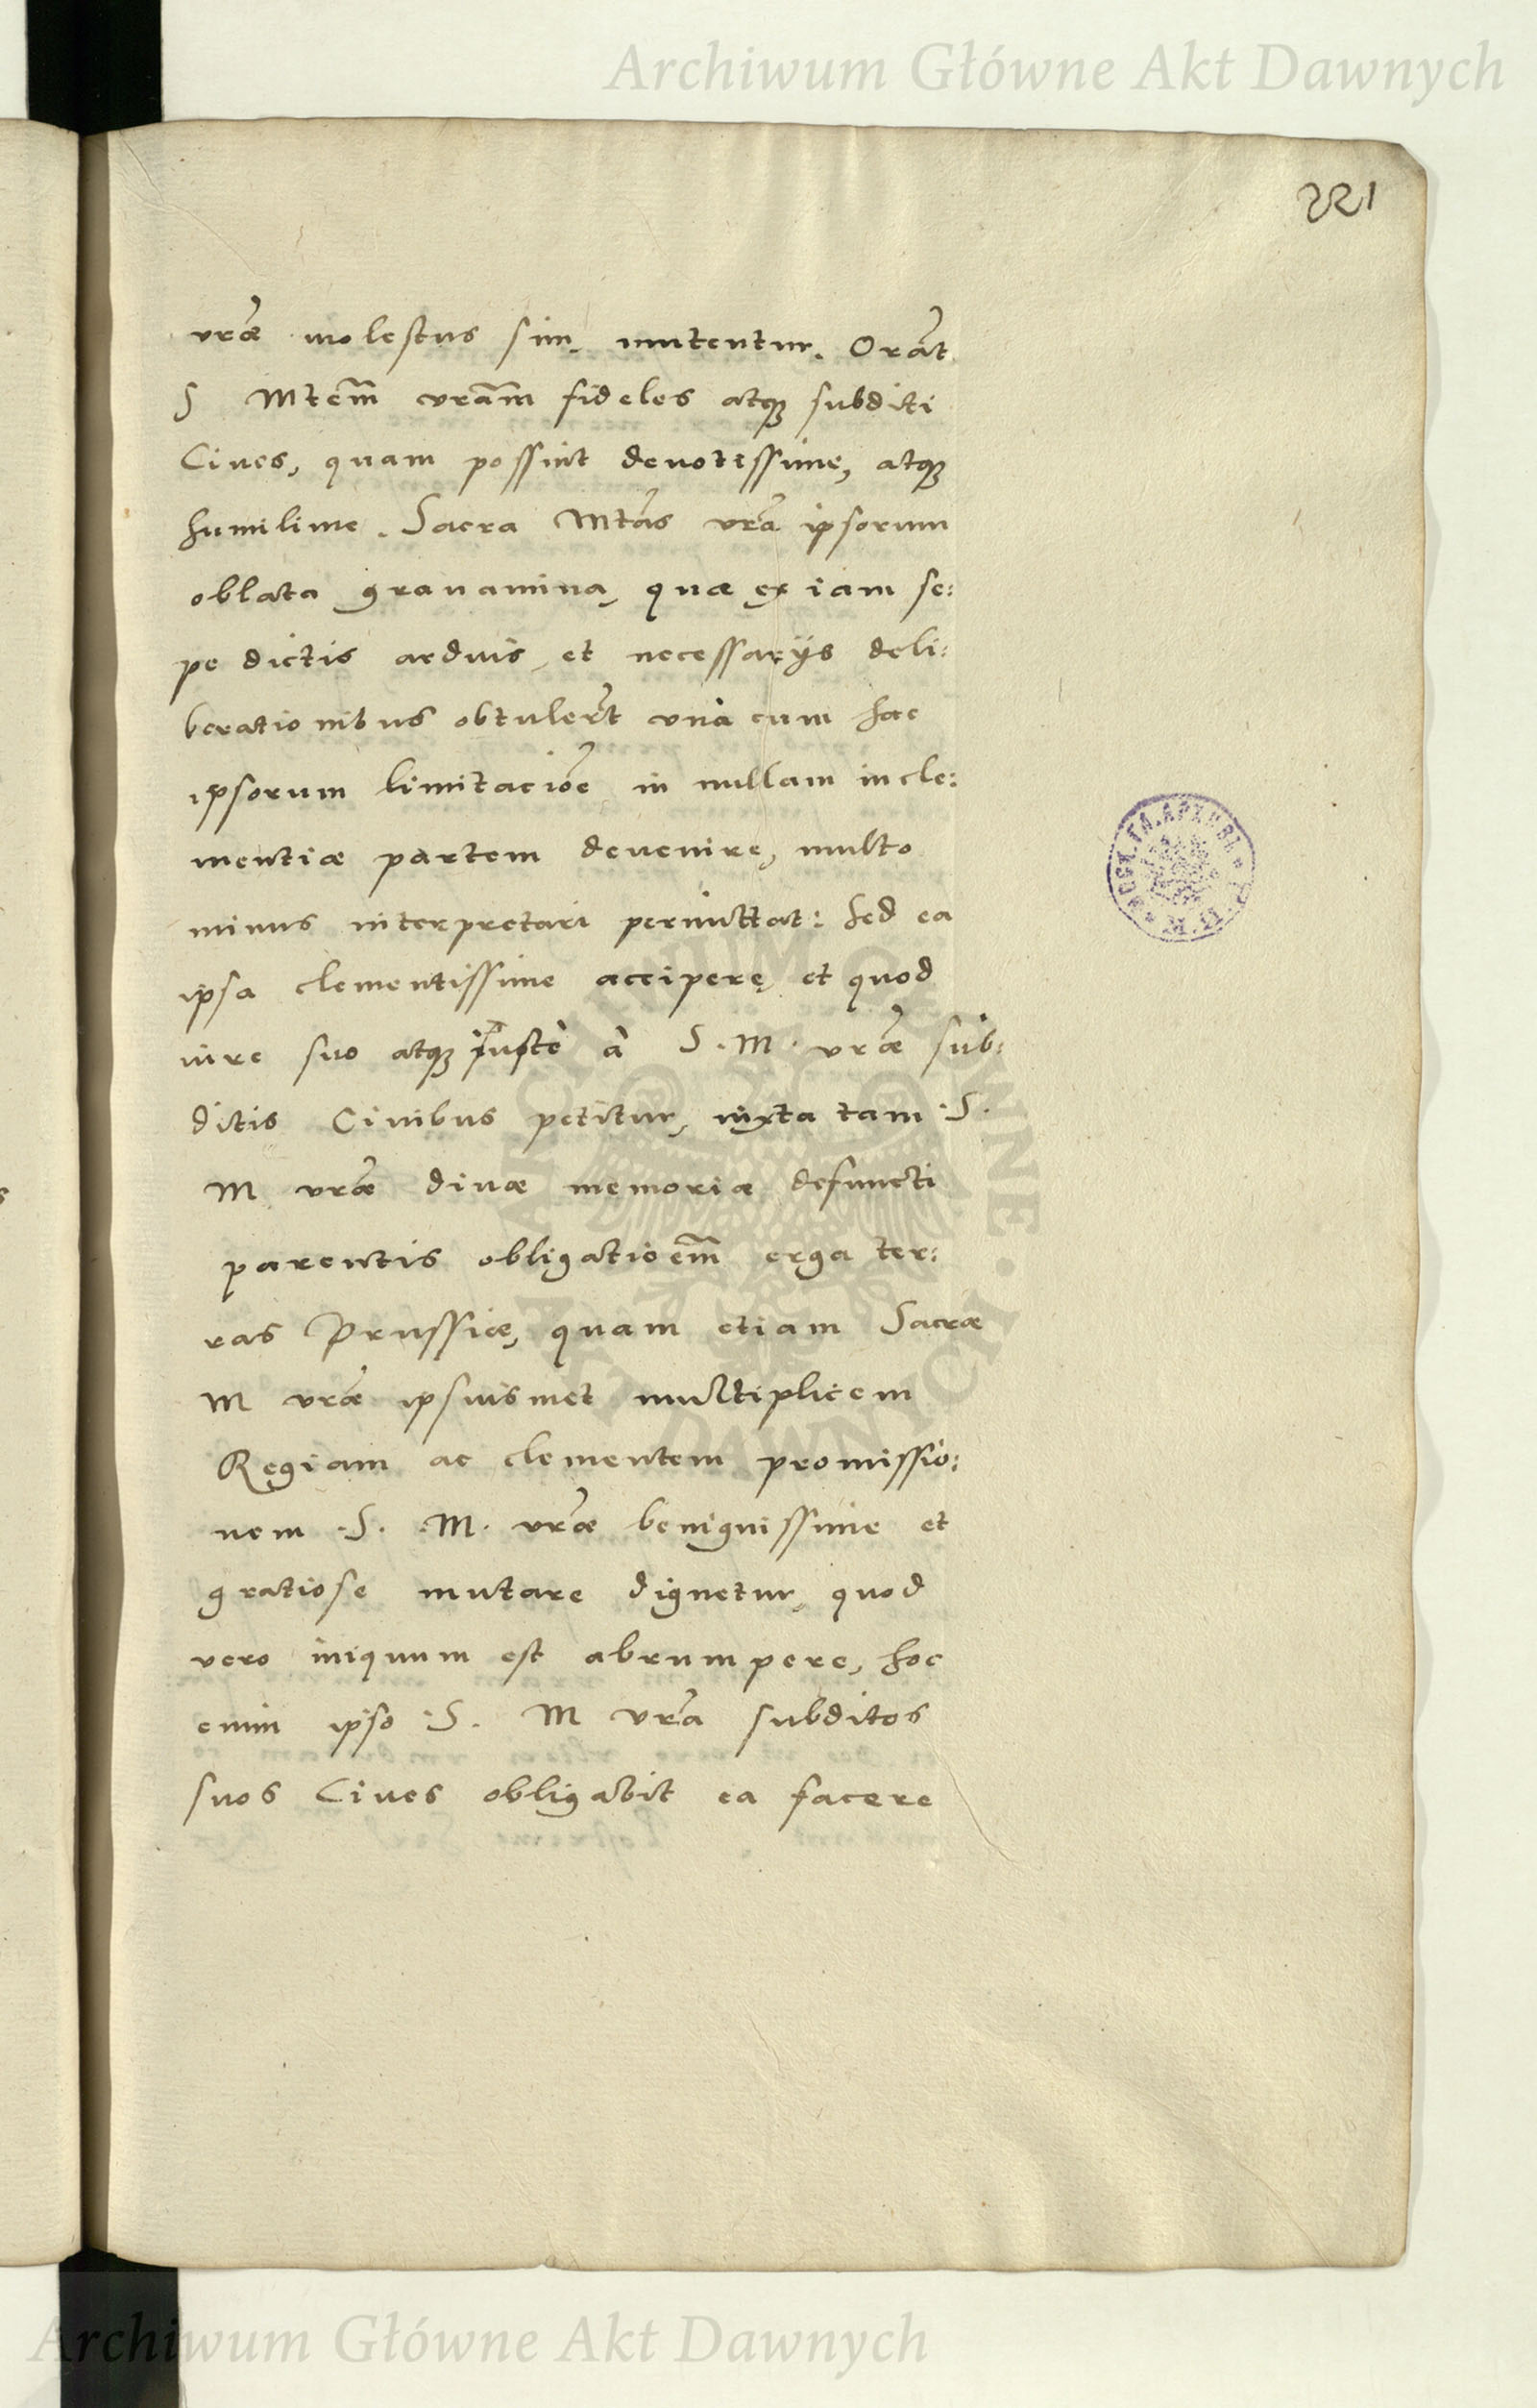 Archiwum Główne Akt Dawnych
221
vrãe molestus sim, mutentur. Orãt
S Mtem̃ vram̃ fideles atq₃ subditi
Ciues, quam possint deuotissime, atq₃
humilime. Sacra Mtãs vrã ipsorum
oblata grauamina, quæ ex iam se:
pe dictis arduis et necessarijs deli:
berationibus obtulert̃ vnà cum hac
ipsorum limitaciõe in nullam incle:
mentiæ partem deuenire, multo
minus interpretari permittat: sed ea
ipsa clementissime accipere, et quod
iure suo atq₃ iustè à S. M. vrãe sub:
ditis Ciuibus petitur, iuxta tam .S.
M vrãe diuæ memoriæ defuncti
parentis obligatioem̃ erga ter:
ras Prussiæ, quam etiam Sacræ
M vrãe ipsiusmet multiplicem
Regiam ac clementem promissio:
nem .S. .M. vrãe benignissime et
gratiose mutare dignetur, quod
vero iniquum est abrumpere, hoc
enim ipso .S. M vrã subditos
suos Ciues obligabit ea facere
ARCHIWUM GŁÓWNE · AKT DAWNYCH ·
Archiwum Główne Akt Dawnych